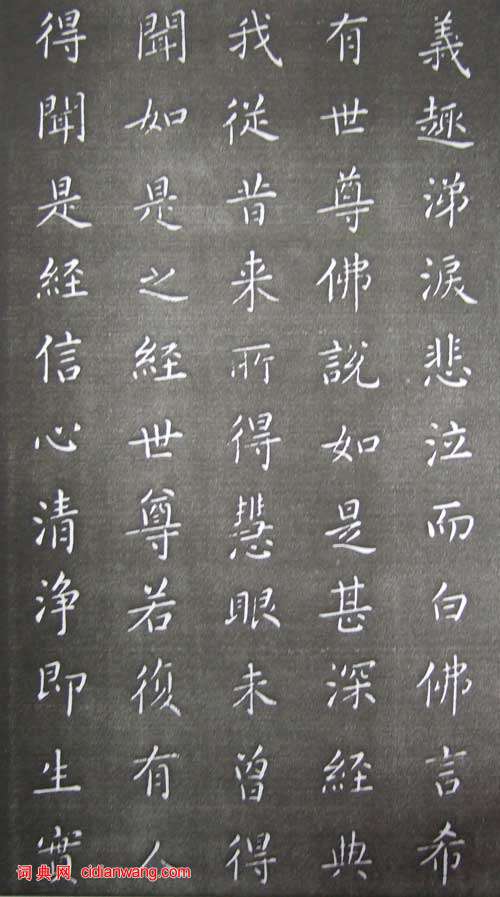 義趣涕淚悲泣而白佛言希
有世尊佛說如是甚深經典
我從昔来所得慧眼未曾得
聞如是之経世尊若復有人
得聞是経信心清淨即生實
词典网 cidianwang.com